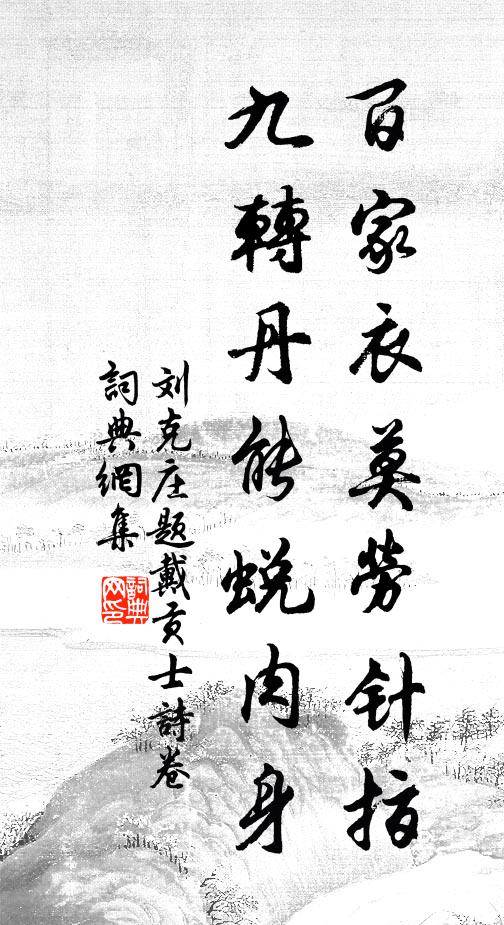 百家衣莫勞针指
九轉丹能蜕肉身
刘克庄题戴贡士詩卷
詞典網集
詞典网印